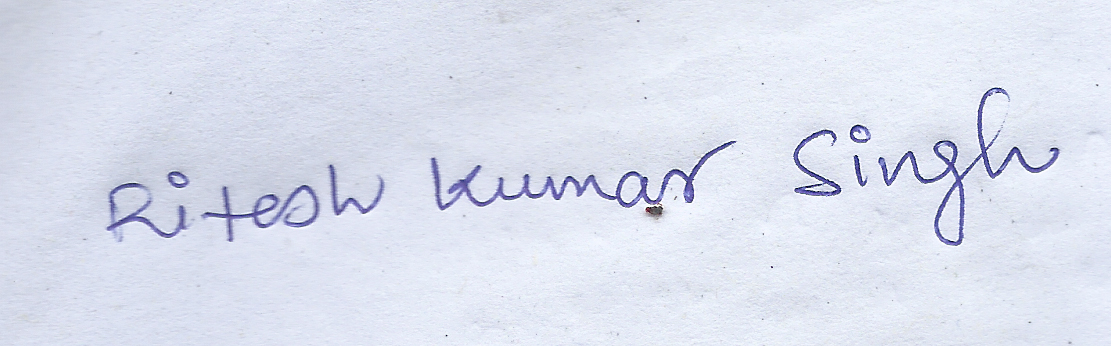 Ritesh Kumar Singh